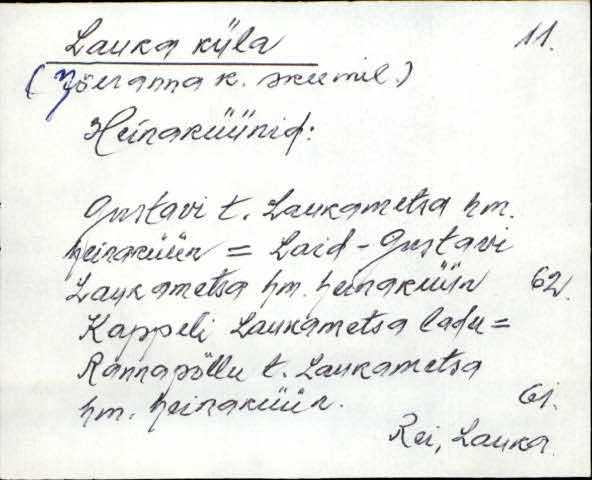 Lauka küla 11.
(Jõeranna k. skeemil.)
Heinaküünid:
Gustavi t. Laukametsa hm.
heinaküün = Laid-Gustavi
Laukametsa hm. heinaküün 62.
Kappeli Laukametsa ladu =
Rannapõllu t. Laukametsa
hm. heinaküün. 61.
Rei, Lauka.